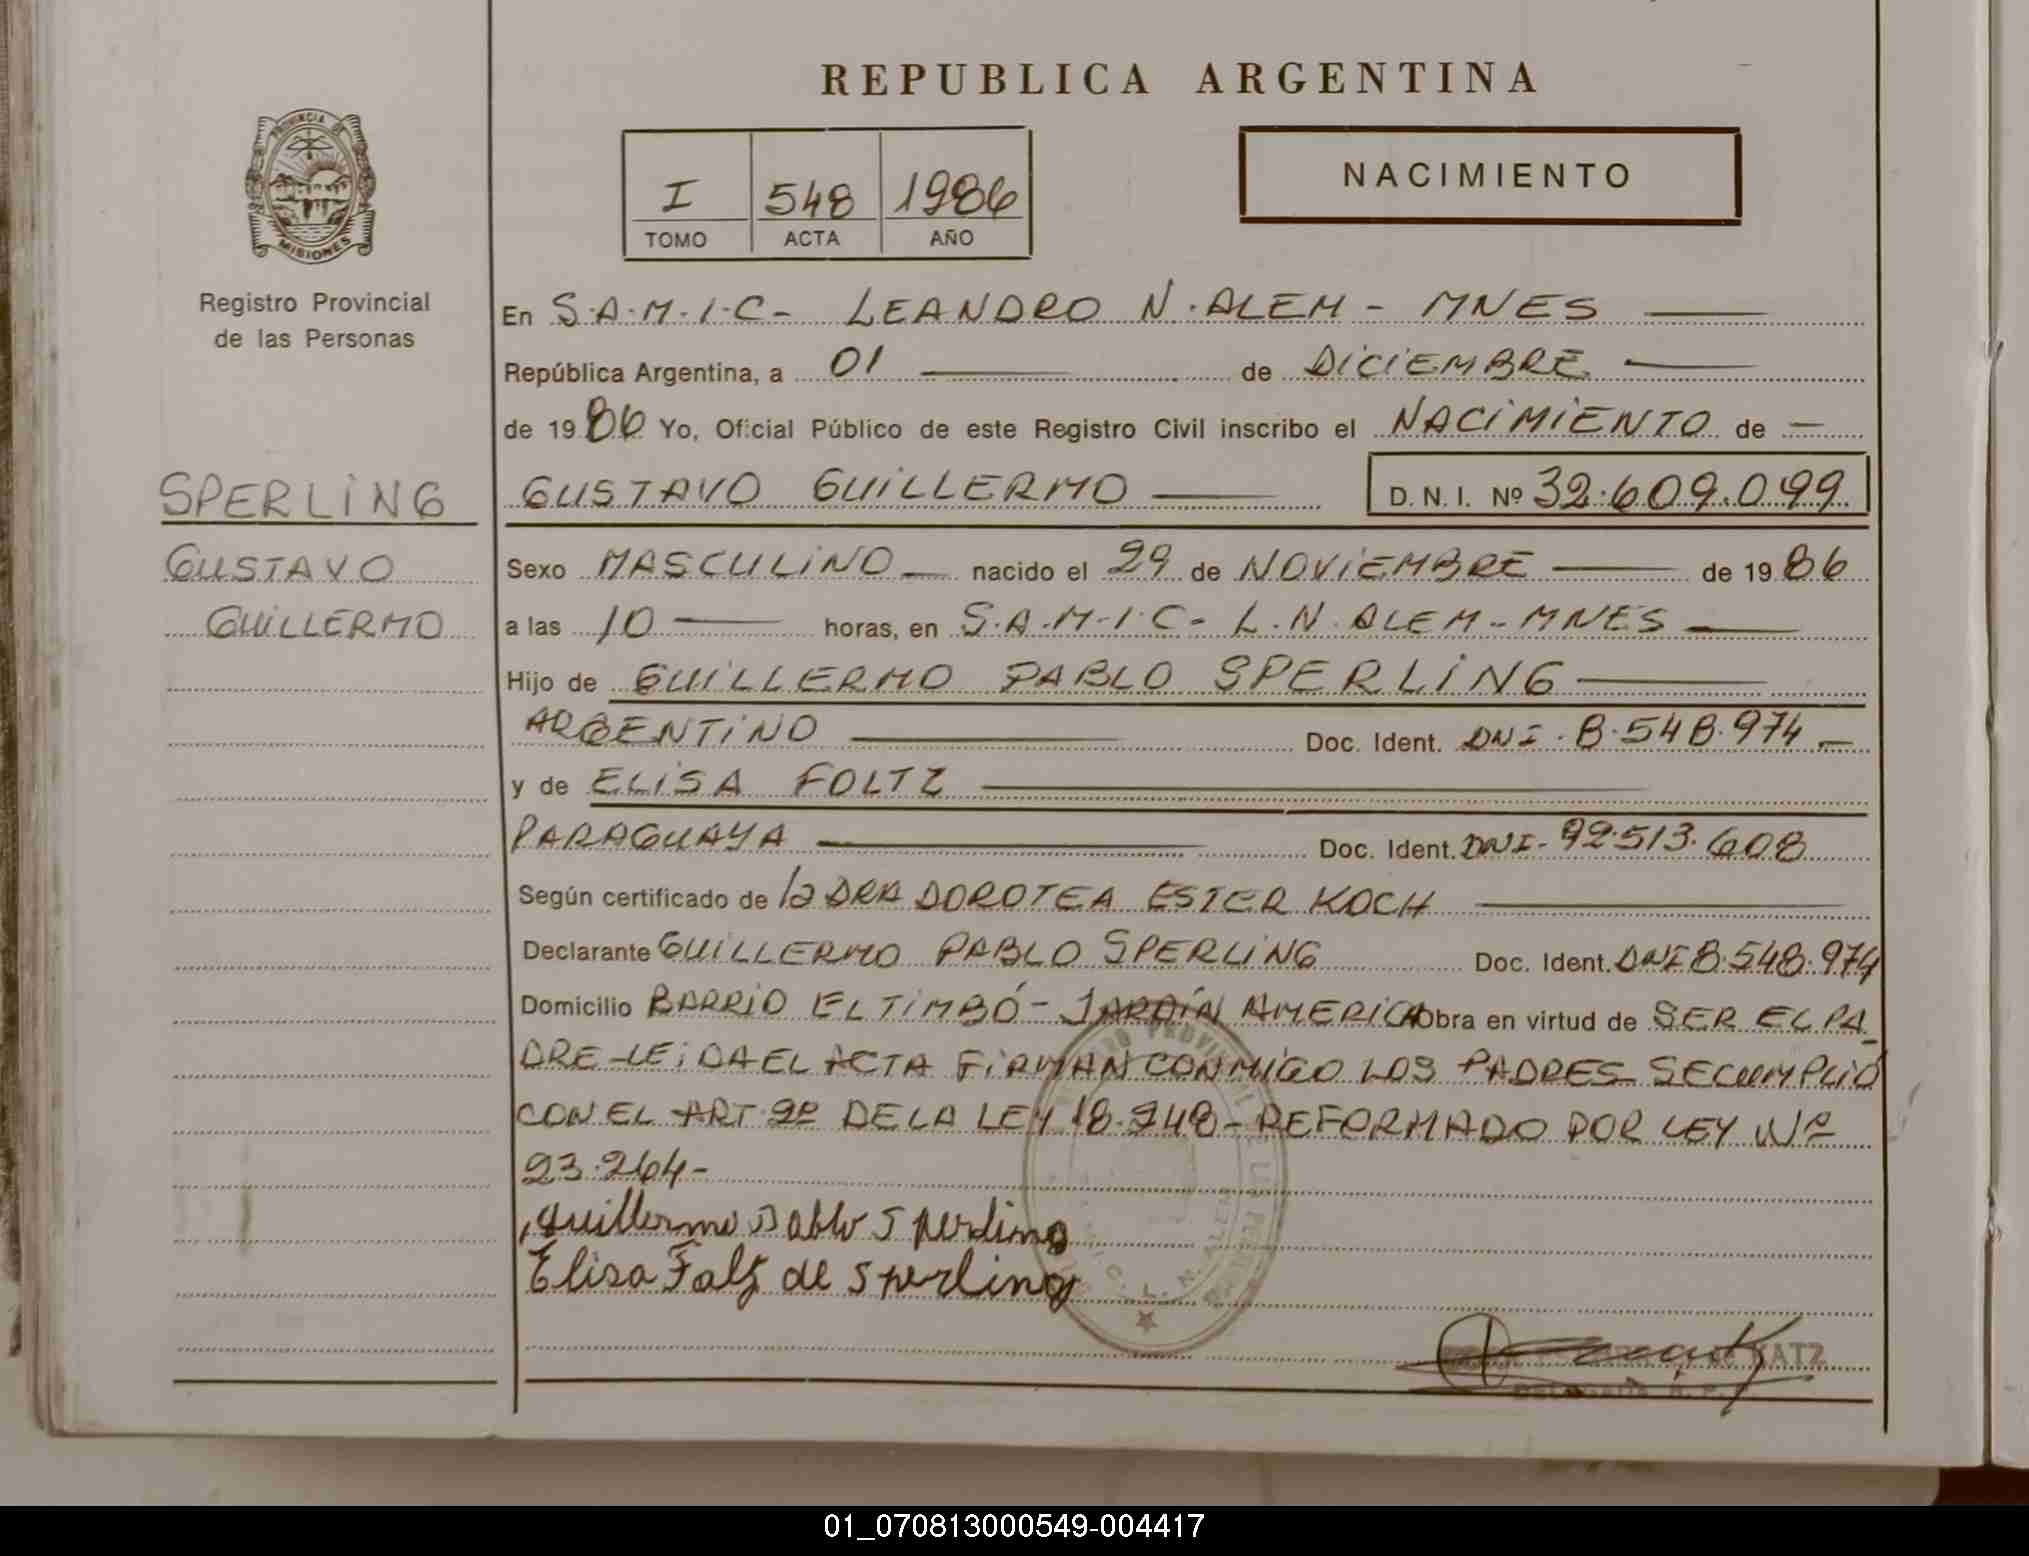 REPUBLICA ARGENTINA
PROVINCIA DE
MISIONES
Registro Provincial
de las Personas
I 548 1986
TOMO ACTA AÑO
NACIMIENTO
En S.A.M.I.C- LEANDRO N. ALEM - MNES
República Argentina, a 01 de DICIEMBRE
de 1986 Yo, Oficial Público de este Registro Civil inscribo el NACIMIENTO de
SPERLING
GUSTAVO GUILLERMO D.N.I. Nº 32.609.099
GUSTAVO
GUILLERMO
Sexo MASCULINO nacido el 29 de NOVIEMBRE de 1986
a las 10 horas, en S.A.M.I.C- L.N. ALEM - MNES
Hijo de GUILLERMO PABLO SPERLING
ARGENTINO Doc. Ident. DNI. 8.548.974
y de ELISA FOLTZ
PARAGUAYA Doc. Ident. DNI- 92.513.608
Según certificado de la DRA DOROTEA ESTER KOCH
Declarante GUILLERMO PABLO SPERLING Doc. Ident. DNI 8.548.974
Domicilio BARRIO EL TIMBÓ - JARDÍN AMERICA Obra en virtud de SER EL PA
DRE - LEIDA EL ACTA FIRMAN CONMIGO LOS PADRES SE CUMPLIÓ
CON EL ART 2º DE LA LEY 18.248 - REFORMADO POR LEY Nº
23.264-
Guillermo Pablo Sperling
Elisa Foltz de Sperling
KATZ
01_070813000549-004417